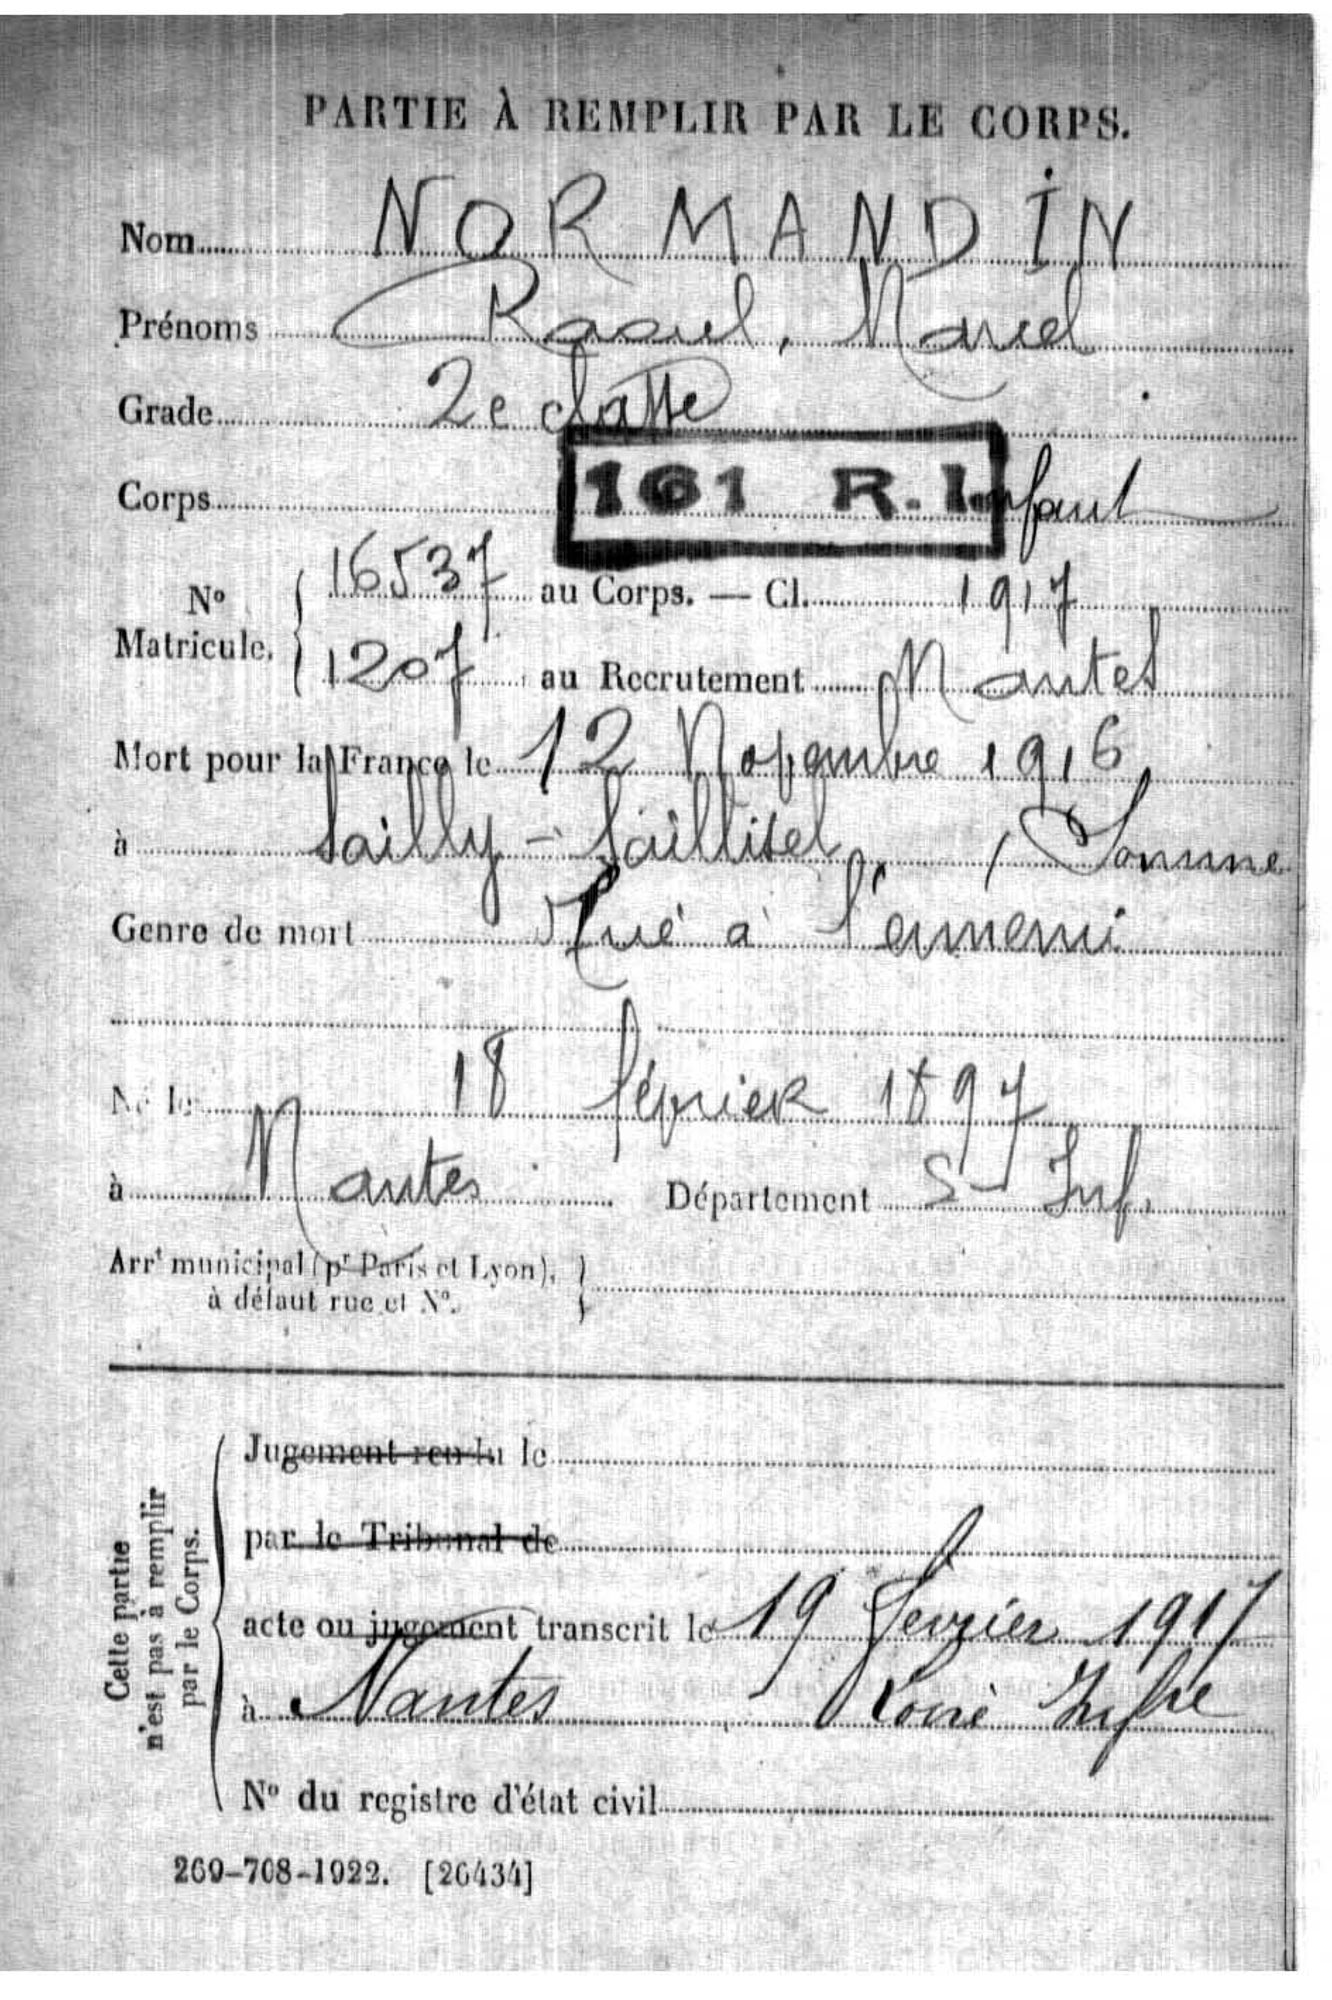 PARTIE À REMPLIR PAR LE CORPS.
Nom NORMANDIN
Prénoms Raoul, Marcel
Grade 2e classe
Corps 161 R. I. nfant
No Matricule. 16537 au Corps. — Cl. 1917
1207 au Recrutement Nantes
Mort pour la France le 12 Novembre 1916
à Sailly - Saillisel, (Somme
Genre de mort Tué à l'ennemi
Né le 18 février 1897
à Nantes Département L- Inf.
Arrt municipal (pr Paris et Lyon), à défaut rue et No.
Cette partie n'est pas à remplir par le Corps.
Jugement rendu le
par le Tribunal de
acte ou jugement transcrit le 19 fevrier 1917
à Nantes Loire Infre
No du registre d'état civil
269-708-1922. [26434]